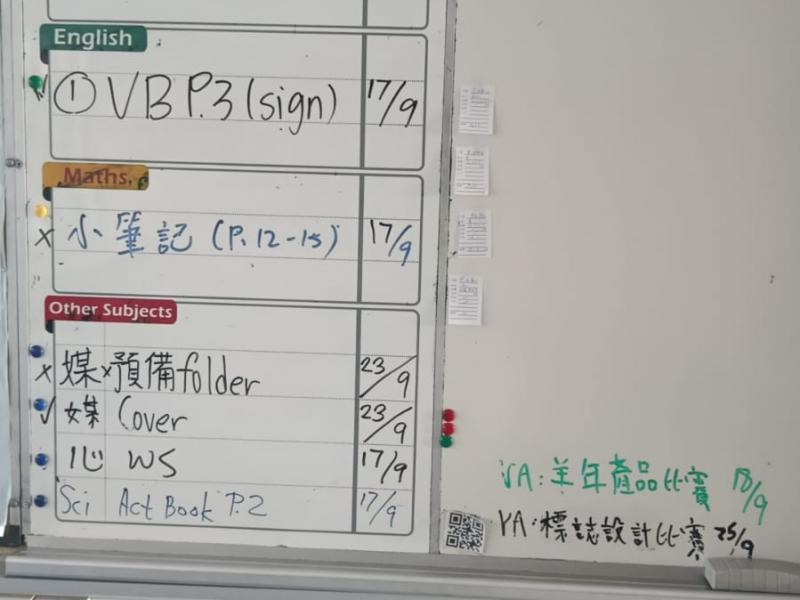 English
① VB P.3 (sign) 17/9
Maths
小筆記 (P.12-15) 17/9
Other Subjects
媒 預備folder 23/9
媒 Cover 23/9
心 WS 17/9
Sci Act Book P.2 17/9
VA: 羊年產品比賽 18/9
VA: 標誌設計比賽 25/9